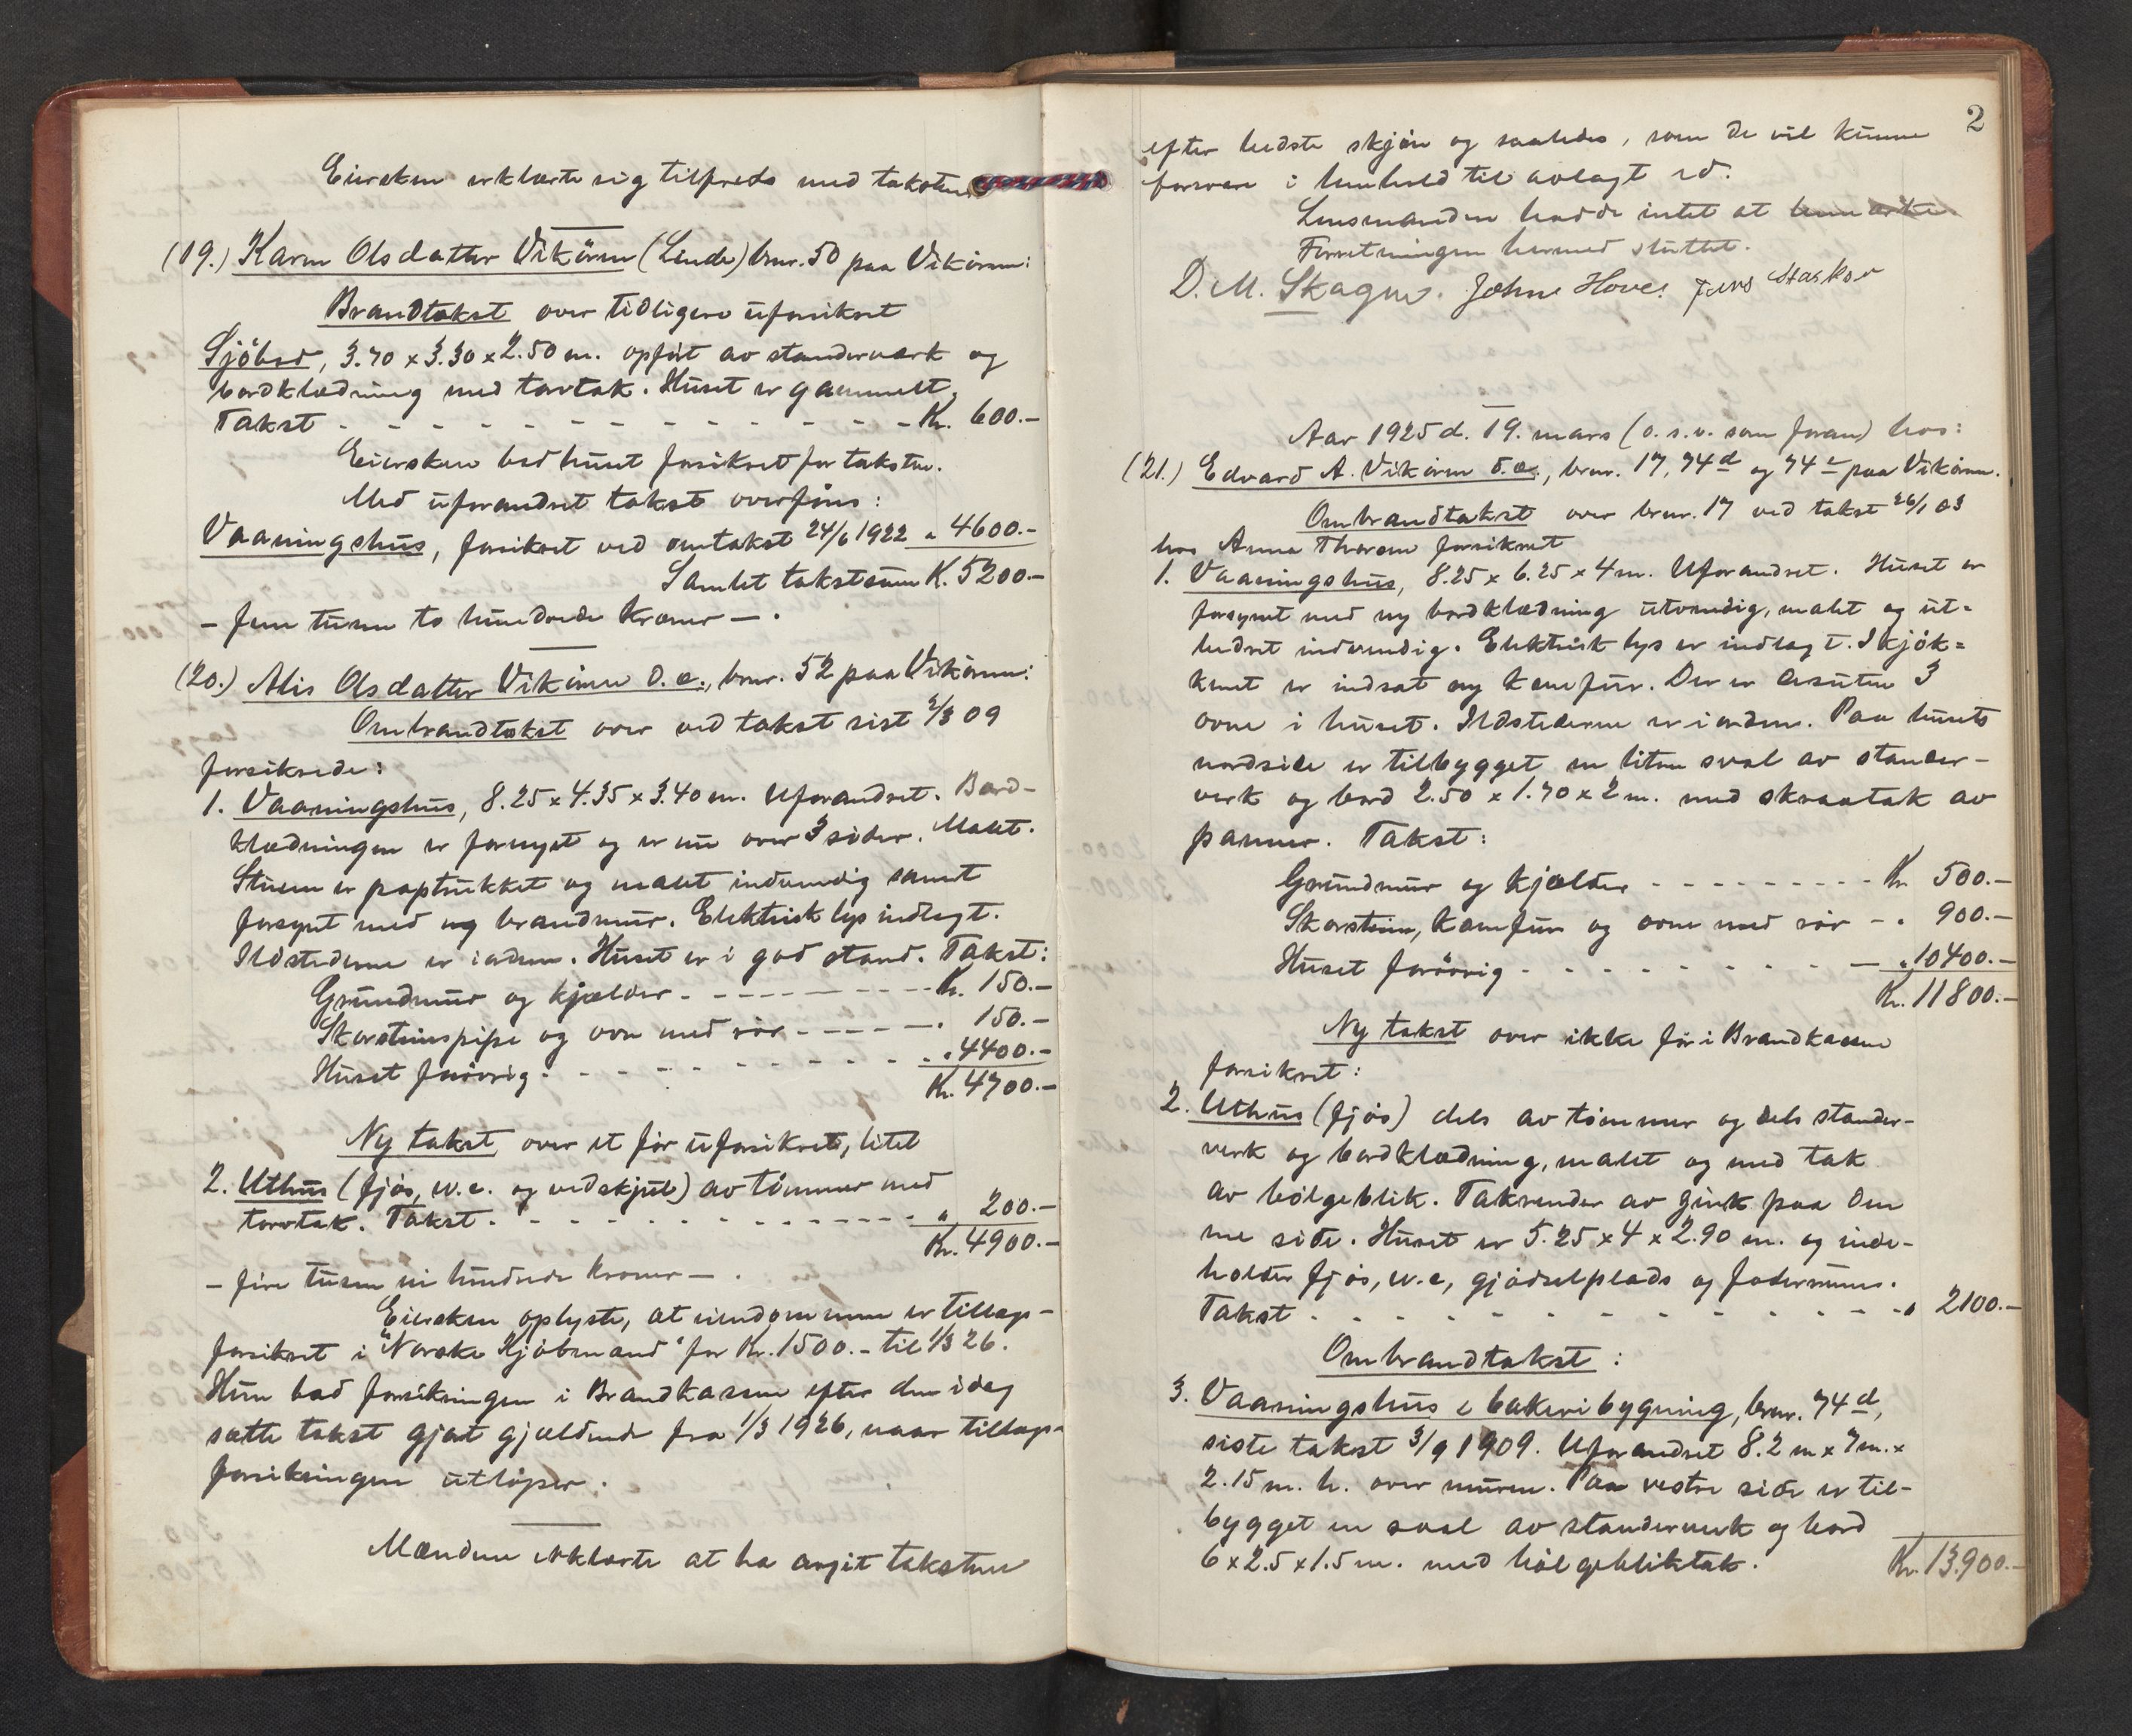 Eiersken erklærte sig tilfreds med taksten.
(19.) Karen Olsdatter Vikören (Linde) brnr. 50 paa Vikören:
Brandtakst over tidligere uforsikret
Sjöbod, 3.70 x 3.30 x 2.50 m. opfört av stenderverk og
bordklædning med torvtak. Huset er gammelt.
Takst - - - - - - - - - - - - - - Kr. 600.-
Eiersken bad huset forsikret for taksten.
Med uforandret takst overföres:
Vaaningshus, forsikret ved omtakst 24/6 1922 " 4600.-
Samlet takstsum K. 5200.-
- fem tusen to hundrede kroner - .
(20.) Alis Olsdatter Vikören o. a., brnr. 52 paa Vikören:
Ombrandtakst over ved takst sist 2/3 09
forsikrede:
1. Vaaningshus, 8.25 x 4.35 x 3.40 m. Uforandret. Bord-
klædningen er fornyet og er nu over 3 sider. Malt.
Stuen er paptrukket og malet indvendig samt
forsynt med ny brandmur. Elektrisk lys indlagt.
Ildstederne er i orden. Huset er i god stand. Takst:
Grundmur og kjælder - - - - - - Kr. 150.-
Skorstenspipe og ovn med rör - - - - - " 150.-
Huset forövrig - - - - - - - - - " 4400.-
Kr. 4700.-
Ny takst over et för uforsikret, litet
2. Uthus (fjös, w.c. og vedskjul) av tömmer med
torvtak. Takst - - - - - - - - - - - - " 200.-
Kr. 4900.-
- fire tusen ni hundrede kroner - .
Eiersken oplyste, at eiendommen er tillægs-
forsikret i "Norske Kjöbmand" for Kr. 1500.- til 1/3 26.
Hun bad forsikringen i Brandkassen efter den idag
satte takst gjort gjældende fra 1/3 1926, naar tillægs-
forsikringen utlöper.
Mændene erklærte at ha avgit taksten
2
efter bedste skjön og saaledes, som de vil kunne
forsvare i henhold til avlagt ed.
Lensmanden hadde intet at bemærke.
Forretningen hermed sluttet.
D. M. Skagen. Johne Hove. Jens
Aar 1925 d. 19. mars (o. s. v. som foran) hos:
(21.) Edvard A. Vikören o. a., brnr. 17, 74d og 74e paa Vikören.
Ombrandtakst over brnr. 17 ved takst 26/1 03
hos Anna Thorsen forsikret
1. Vaaningshus, 8.25 x 6.25 x 4 m. Uforandret. Huset er
forsynet med ny bordklædning utvendig, malet og ut-
bedret indvendig. Elektrisk lys er indlagt. I kjök-
kenet er indsat ny komfur. Der er desuten 3
ovne i huset. Ildstederne er i orden. Paa husets
nordside er tilbygget en liten sval av stender-
verk og bord 2.50 x 1.70 x 2 m. med skraatak av
panner. Takst:
Grundmur og kjælder - - - - - - - - - Kr. 500.-
Skorstein, komfur og ovne med rör - " 900.-
Huset forövrig - - - - - - - - - - " 10400.-
Kr. 11800.-
Ny takst over ikke för i Brandkassen
forsikret:
2. Uthus (fjös) dels av tömmer og dels stender-
verk og bordklædning, malet og med tak
av bölgeblik. Takrender av zink paa den
ene side. Huset er 5.25 x 4 x 2.90 m. og inde-
holder fjös, w.c, gjödselplads og foderrum.
Takst - - - - - - - - - - - - - " 2100.-
Ombrandtakst:
3. Vaaningshus & bakeribygning, brnr. 74d,
siste takst 3/9 1909. Uforandret 8.2 m x 7 m. x
2.15 m. h. over muren. Paa vestre side er til-
bygget en sval av stenderverk og bord
6 x 2.5 x 1.5 m. med bölgebliktak.
Kr. 13.900.-